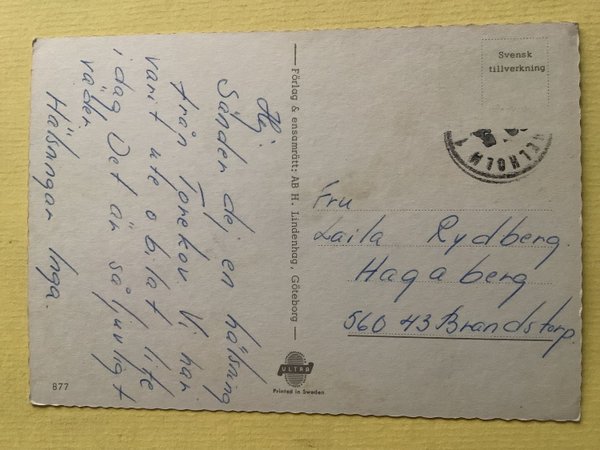 Hej.
Sänder dej en hälsning
från Torekov. Vi har
varit ute o bilat lite
i dag Det är så ljuvligt
väder.
Hälsningar Inga.
Förlag & ensamrätt: AB H. Lindenhag, Göteborg
Svensk
tillverkning
ELHOLM 1
Fru
Laila Rydberg.
Hagaberg
560 43 Brandstorp.
ULTRA
Printed in Sweden
877